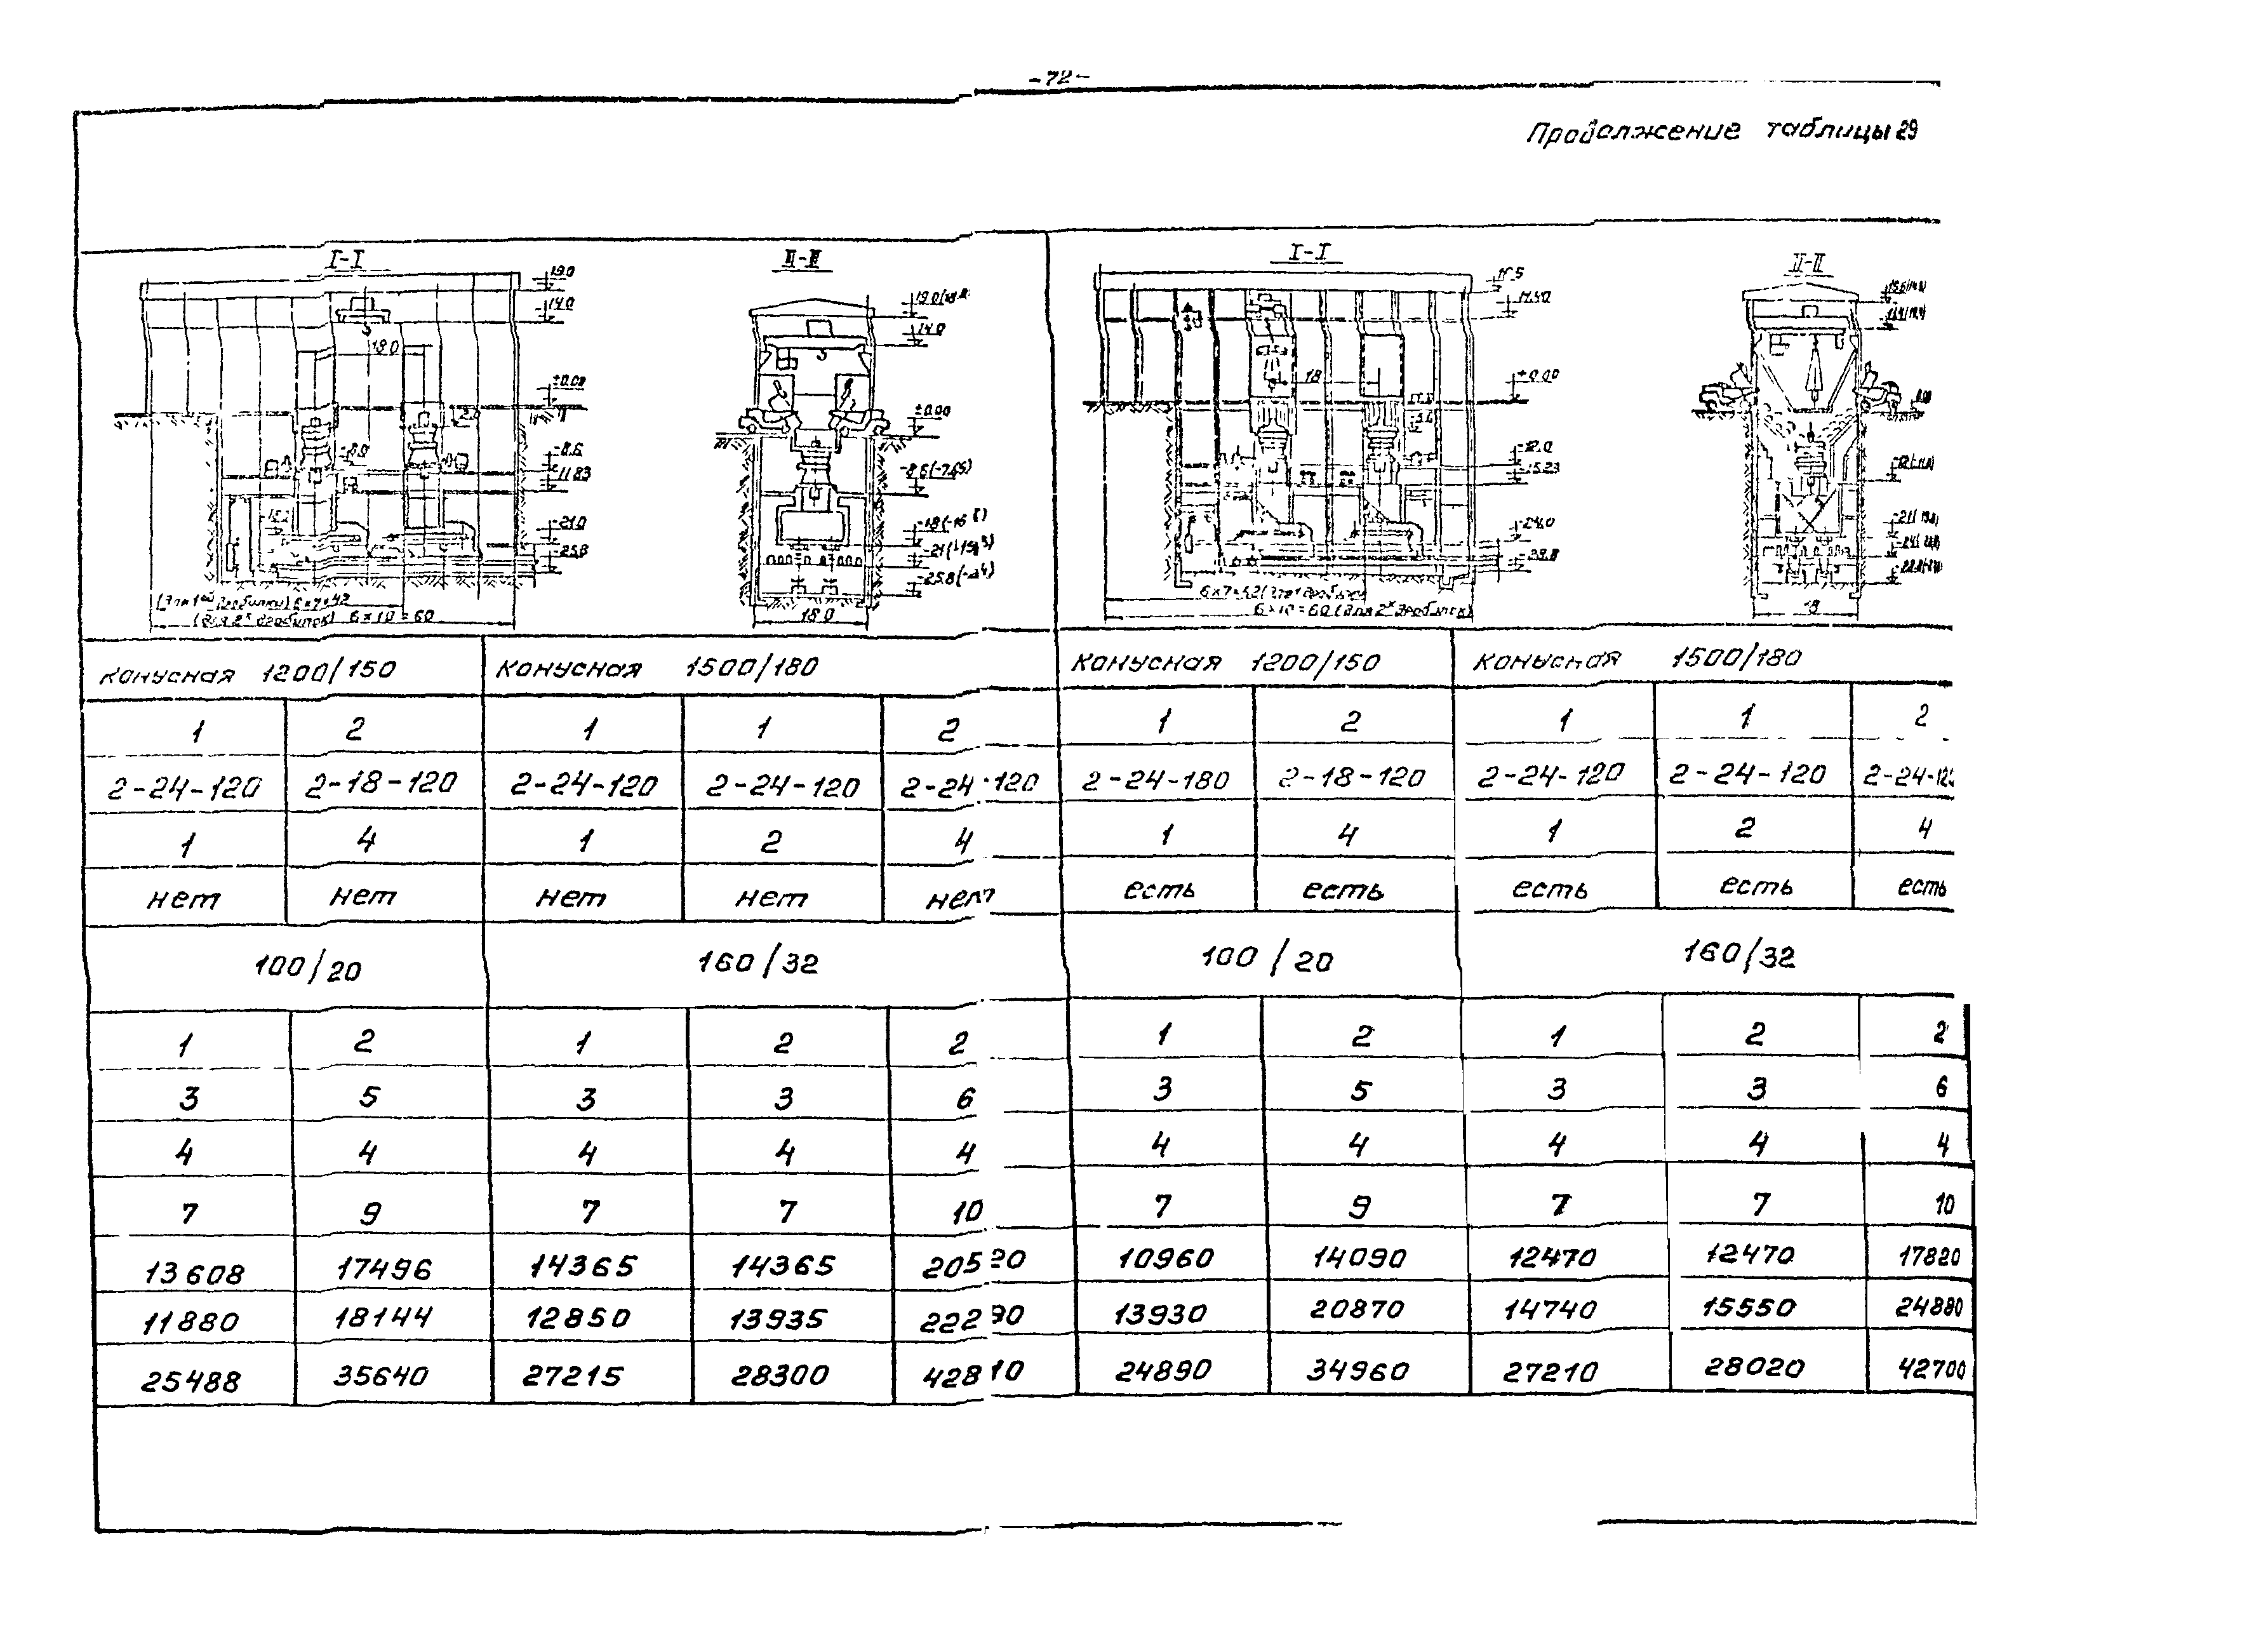 -72-
Продолжение таблицы 29
I-I
19.0
14.0
18.0
±0.00
-8.6
-11.83
-21.0
-25.8
6×7=42
(для 2х дробилок) 6×10=60
II-II
14.0
±0.00
-8,6(-7,65)
18.0
I-I
18
±0.00
-12.0
-15.23
-24.0
6×10=60 (для 2х дробилок)
II-II
18
конусная 1200/150 конусная 1500/180 конусная 1200/150 конусная 1500/180
1 2 1 1 2 1 2 1 1 2
2-24-120 2-18-120 2-24-120 2-24-120 2-24-120 2-24-180 2-18-120 2-24-120 2-24-120 2-24-12
1 4 1 2 4 1 4 1 2 4
нет нет нет нет нет есть есть есть есть есть
100/20 160/32 100/20 160/32
1 2 1 2 2 1 2 1 2 2
3 5 3 3 6 3 5 3 3 6
4 4 4 4 4 4 4 4 4 4
7 9 7 7 10 7 9 7 7 10
13608 17496 14365 14365 20520 10960 14090 12470 12470 17820
11880 18144 12850 13935 22290 13930 20870 14740 15550 24880
25488 35640 27215 28300 42810 24890 34960 27210 28020 42700